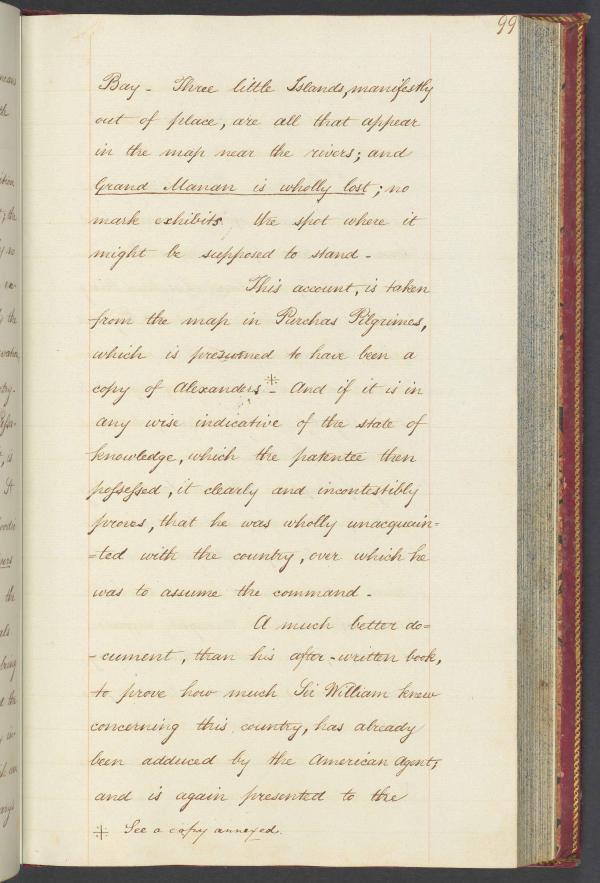 99
Bay - Three little Islands, manifestly
out of place, are all that appear
in the map near the rivers; and
Grand Manan is wholly lost; no
mark exhibits the spot where it
might be supposed to stand -
This account, is taken
from the map in Purchas Pilgrimes,
which is presumed to have been a
copy of Alexanders ⁜ - And if it is in
any wise indicative of the state of
knowledge, which the patentee then
possessed, it clearly and incontestibly
proves, that he was wholly unacquain=
=ted with the country, over which he
was to assume the command -
A much better do=
-cument, than his after-written book,
to prove how much Sir William knew
concerning this country, has already
been adduced by the American Agent,
and is again presented to the
⁜ See a copy annexed.